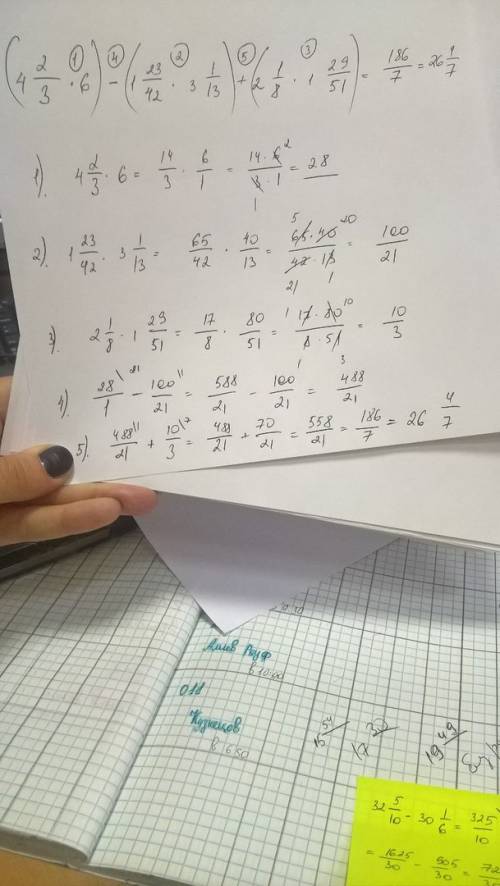 (4 2/3 · 6) − (1 23/42 · 3 1/13) + (2 1/8 · 1 29/51) = 186/7 = 26 4/7
① ④ ② ⑤ ③
1). 4 2/3 · 6 = 14/3 · 6/1 = 14 · 6 2/3 · 1 1 = 28
2). 1 23/42 · 3 1/13 = 65/42 · 40/13 = 5 65 · 40 20/42 · 13 21 1 = 100/21
3). 2 1/8 · 1 29/51 = 17/8 · 80/51 = 1 17 · 80 10/8 · 51 1 3 = 10/3
4). 28\21/1 − 100\1/21 = 588/21 − 100/21 = 488/21
5). 488\1/21 + 10\7/3 = 488/21 + 70/21 = 558/21 = 186/7 = 26 4/7
Алиев Рауф
в 10:00
018
Кузнецов
в 6:50
17
19 49
32 5/10 − 30 1/6 = 325/10
= 1625/30 − 905/30 =